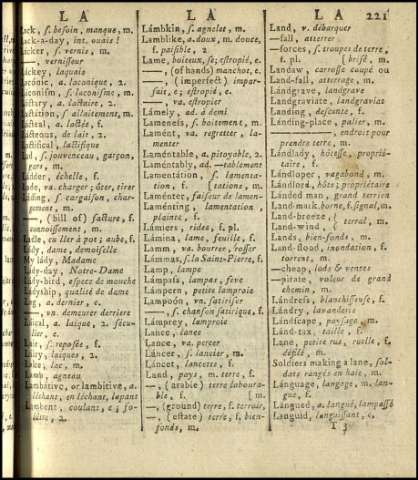 L A
L A
L A 221
Lack, ſ. beſoin, manque, m.
Lack-a-day, int. ouais !
Lacker, ſ. vernis, m.
—, verniſſeur
Lackey, laquais
Lacónic, a. laconique, 2.
Laconiſm, ſ. laconiſme, m.
a. lactaire, 2.
ſ. allaitement, m.
Lacteal, a. lactée, f.
Lacteous, de lait, 2.
lactifique
Lad, ſ. jouvenceau, garçon,
gars, m.
Ládder, échelle, f.
Lade, va. charger ; ôter, tirer
Láding, ſ. cargaison, char-
gement, m.
—, (bill of) facture, f.
connoiſſement, m.
Ladle, cu ller à pot ; aube, f.
Lády, dame, demoiſelle
My lády, Madame
Lády-day, Notre-Dame
Lády-bird, eſpece de mouche
Ládyſhip, qualité de dame
Lag, a. dernier, e.
—, vn. demeurer derriere
a. laïque, 2. ſécu-
lier, e.
Lair, ſ. repoſée, f.
laïques, 2.
Lake, lac, m.
Lamb, agneau
Lámbitive, or lambitive, a.
léchant, en léchant, lapant
Lámbent, coulant, e ; jo-
2.
Lámbkin, ſ. agnelet, m.
Lámblike, a. doux, m. douce,
f. paiſible, 2
Lame, boiteux, ſe ; eſtropié, e.
—, (of hands) manchot, e.
—, (imperfect) impar-
fait, e ; eſtropié, e.
—, va. eſtropier
Lámely, ad. à demi
Lameneſs, ſ. boitement, m.
Lamént, va. regretter, la-
menter
Laméntable, a. pitoyable, 2.
Laméntably, ad. —tablement
Lamentátion, ſ. lamenta-
tion, f. [tations, m.
Laménter, faiſeur de lamen-
Laménting, lamentation,
plainte, f.
Lámiers, rides, f. pl.
Lámina, lame, feuille, f.
Lamm, va. boutrer, roſſer
Lámmas, ſ. la Saint-Pierre, f.
Lamp, lampe
Lámpaſs, lampas, féve
Lámpern, petite lamproie
Lampoón, vn. ſatiriſer
—, ſ. chanſon ſatirique, f.
Lámprey, lamproie
Lance, lance
Lance, va. percer
Láncer, ſ. lancier, m.
Láncet, lancette, f.
Land, pays, m. terre, f.
—, (arable) terre laboura-
ble, f. [m.
—, (ground) terre, f. terroir,
—, (eſtate) terre, f. bien-
fonds, m.
Land, v. débarquer
—fall, atterrer
—forces, ſ. troupes de terre,
f. pl. [briſé, m.
Landaw, carroſſe coupé ou
—fall, atterrage, m.
Lándgrave, landgrave
Landgraviate, landgraviat
Landing, deſcente, f.
Lánding-place, palier, m.
—, endroit pour
prendre terre, m.
Lándlady, hôteſſe, proprié-
taire, f.
Lándloper, vagabond, m.
Lándlord, hôte ; propriétaire
Lánded man, grand terrien
Land-mark, borne, f. ſignal, m.
Land-breeze, { terral, m.
Land-wind, {
Lands, bien-fonds, m.
Land-flood, inondation, f.
torrent, m.
—cheap, lods & ventes
—pirate, voleur de grand
chemin, m.
Lándreſs, blanchiſſeuſe, f.
Lándry, lavanderie
Lándſcape, payſage, m.
Lánd-tax, taille, f.
Lane, petite rue, ruelle, f.
défilé, m.
Soldiers making a lane, ſol-
dats rangés en haie, m.
Lánguage, langage, m. lan-
gue, f.
Lángued, a. langué, lampaſſé
Languid, languiſſant, e.
T 3